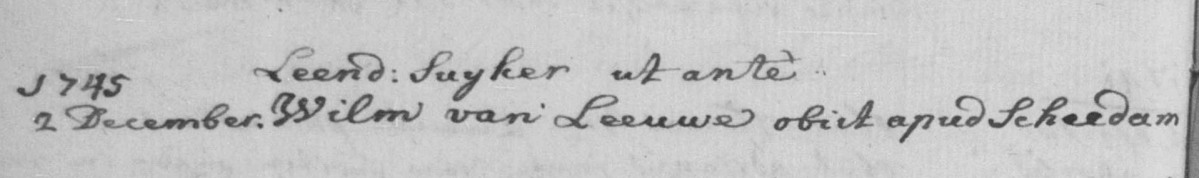 Leend: Suyker ut antè
1745
2 December. Wilm van Leeuwe obiit apud Scheedam